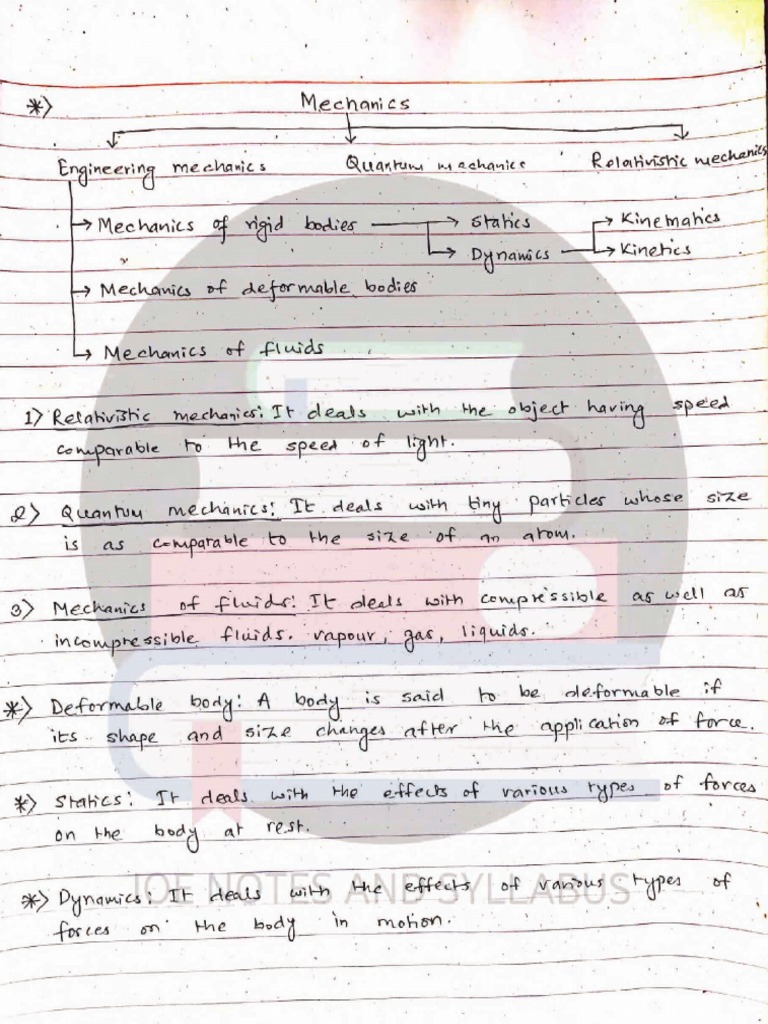 *> Mechanics
Engineering mechanics Quantum mechanics Relativistic mechanics
→ Mechanics of rigid bodies → Statics → Kinematics
→ Dynamics → Kinetics
→ Mechanics of deformable bodies
→ Mechanics of fluids
1> Relativistic mechanics: It deals with the object having speed
comparable to the speed of light.
2> Quantum mechanics: It deals with tiny particles whose size
is as comparable to the size of an atom.
3> Mechanics of fluids: It deals with compressible as well as
incompressible fluids. vapour, gas, liquids.
*> Deformable body: A body is said to be deformable if
its shape and size changes after the application of force.
*> Statics: It deals with the effects of various types of forces
on the body at rest.
*> Dynamics: It deals with the effects of various types of
forces on the body in motion.
IOE NOTES AND SYLLABUS